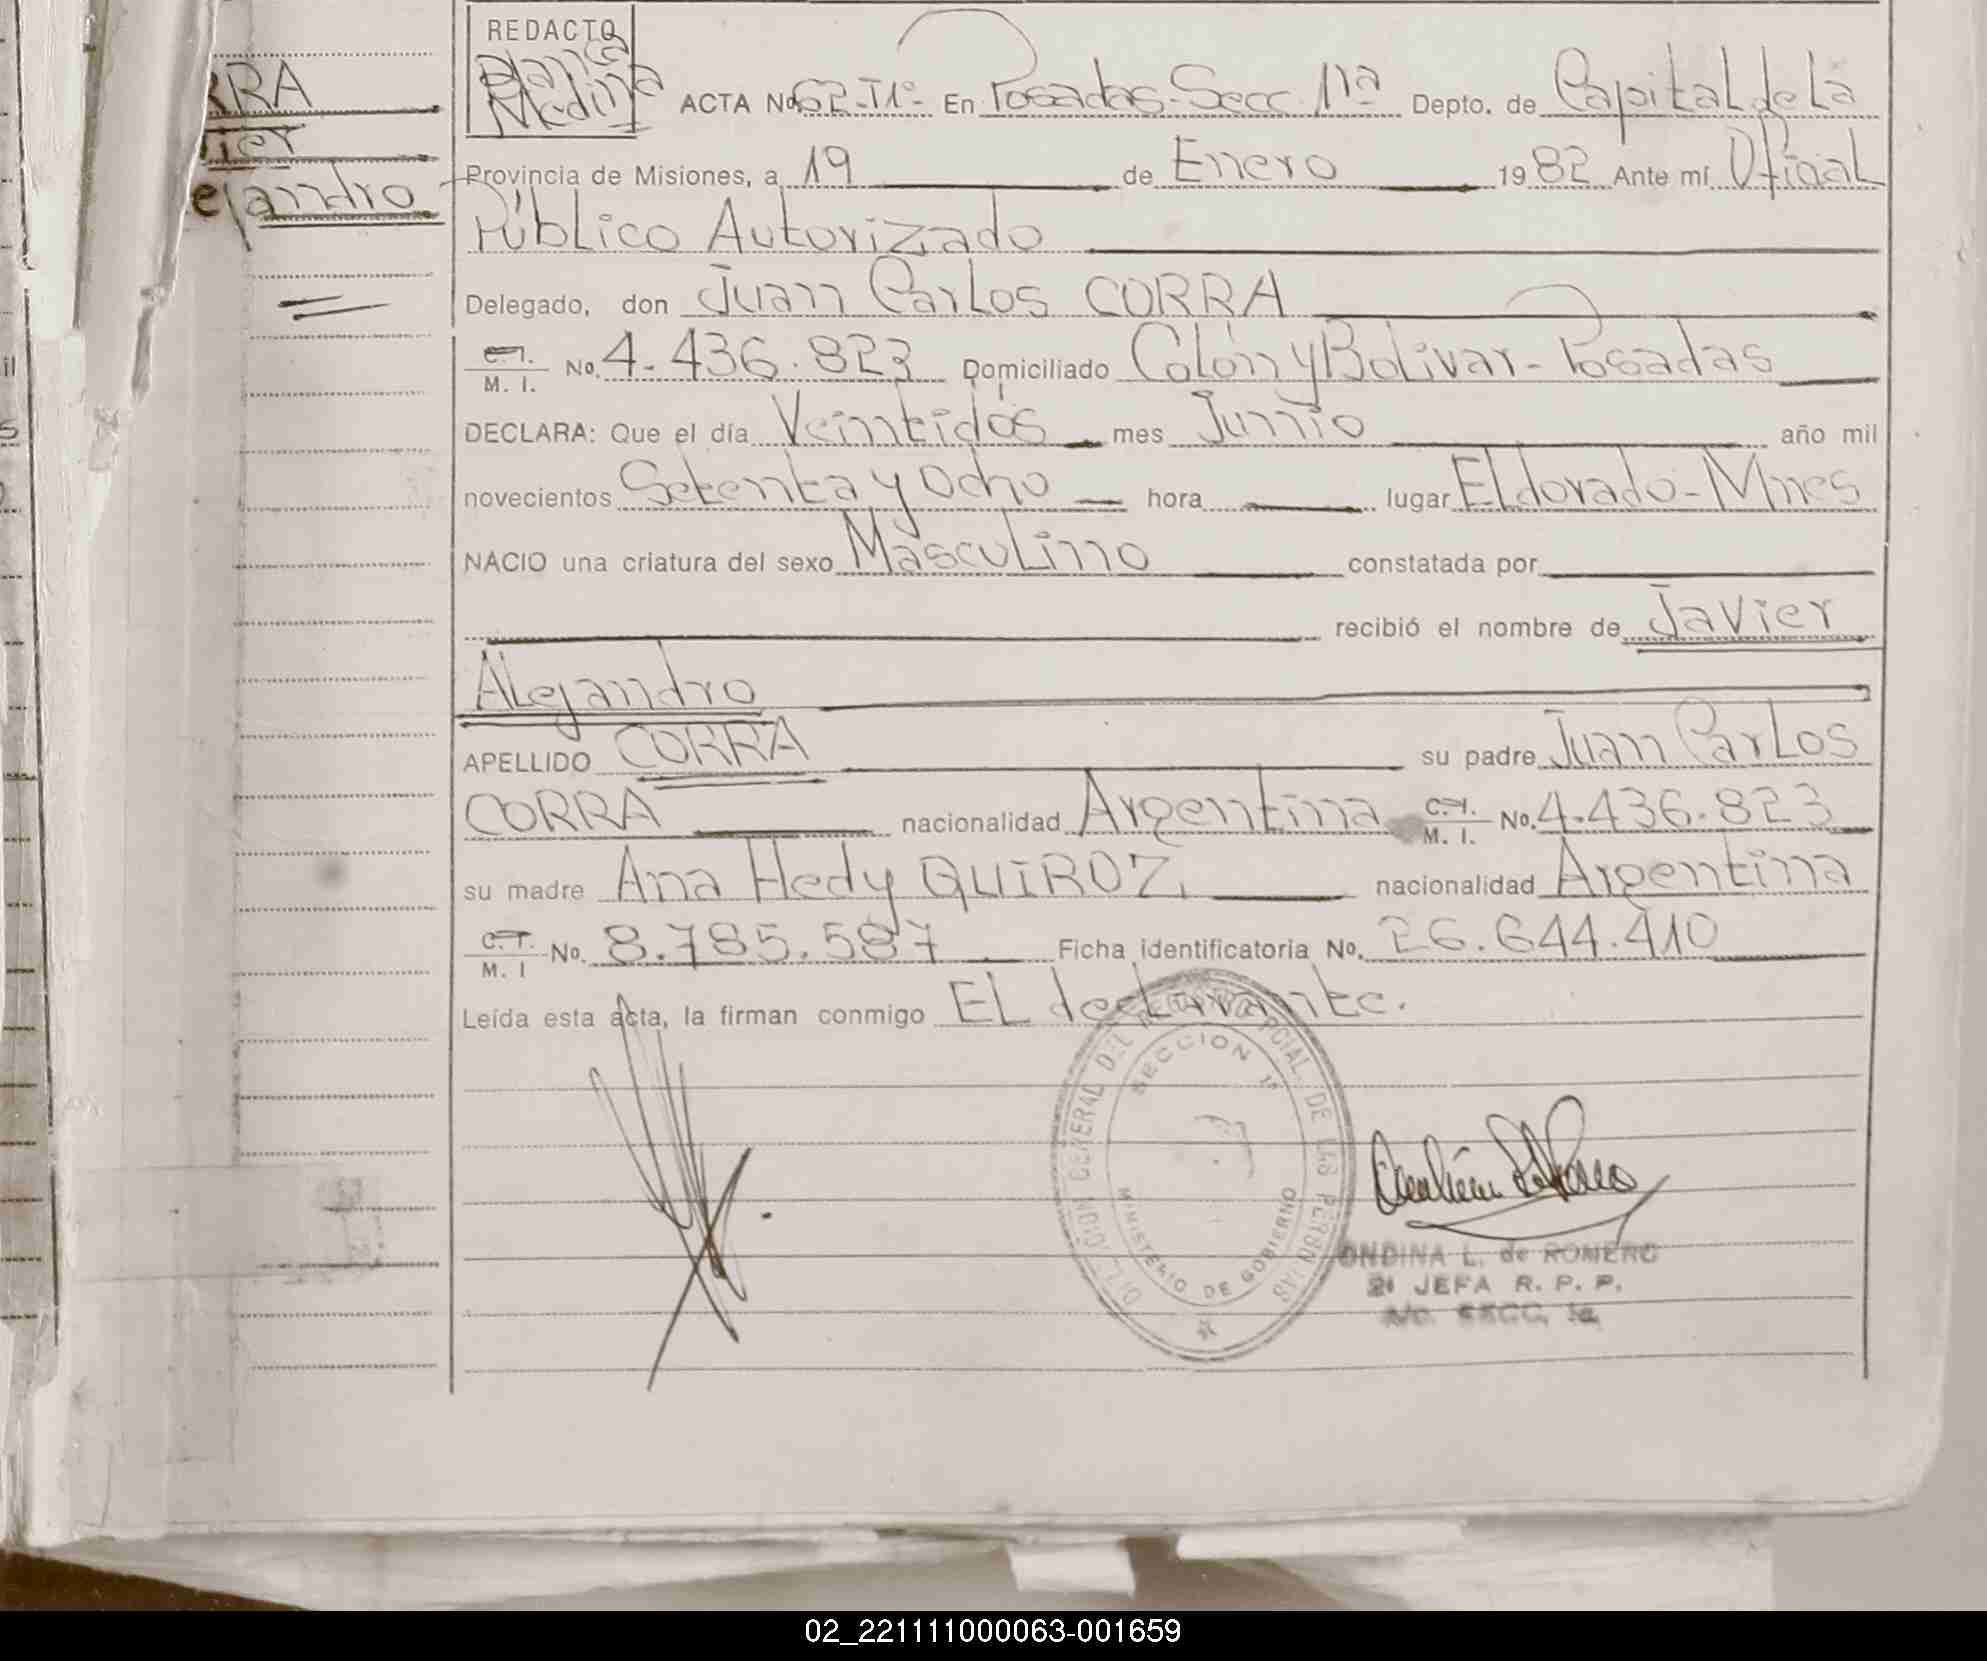 RRA
REDACTO
Blanca
Medina
ACTA No. 62-T1º- En Posadas-Secc. 1ra Depto. de Capital de la
Provincia de Misiones, a 19 de Enero 1982 Ante mí Oficial
Público Autorizado
ejandro
Delegado, don Juan Carlos CORRA
C.I.
M. I. No. 4.436.823 Domiciliado Colón y Bolivar - Posadas
DECLARA: Que el día Veintidós mes Junio año mil
novecientos Setenta y Ocho hora lugar Eldorado - Mnes
NACIO una criatura del sexo Masculino constatada por
recibió el nombre de Javier
Alejandro
APELLIDO CORRA su padre Juan Carlos
CORRA nacionalidad Argentina C.I. M. I. No. 4.436.823
su madre Ana Hedy QUIROZ nacionalidad Argentina
C.I. M. I No. 8.785.587 Ficha identificatoria No. 26.644.410
Leída esta acta, la firman conmigo El declarante.
SECCION 1ª
MINISTERIO DE GOBIERNO
ONDINA L. de ROMERO
2ª JEFA R. P. P.
A/C. SECC. 1a.
02_221111000063-001659